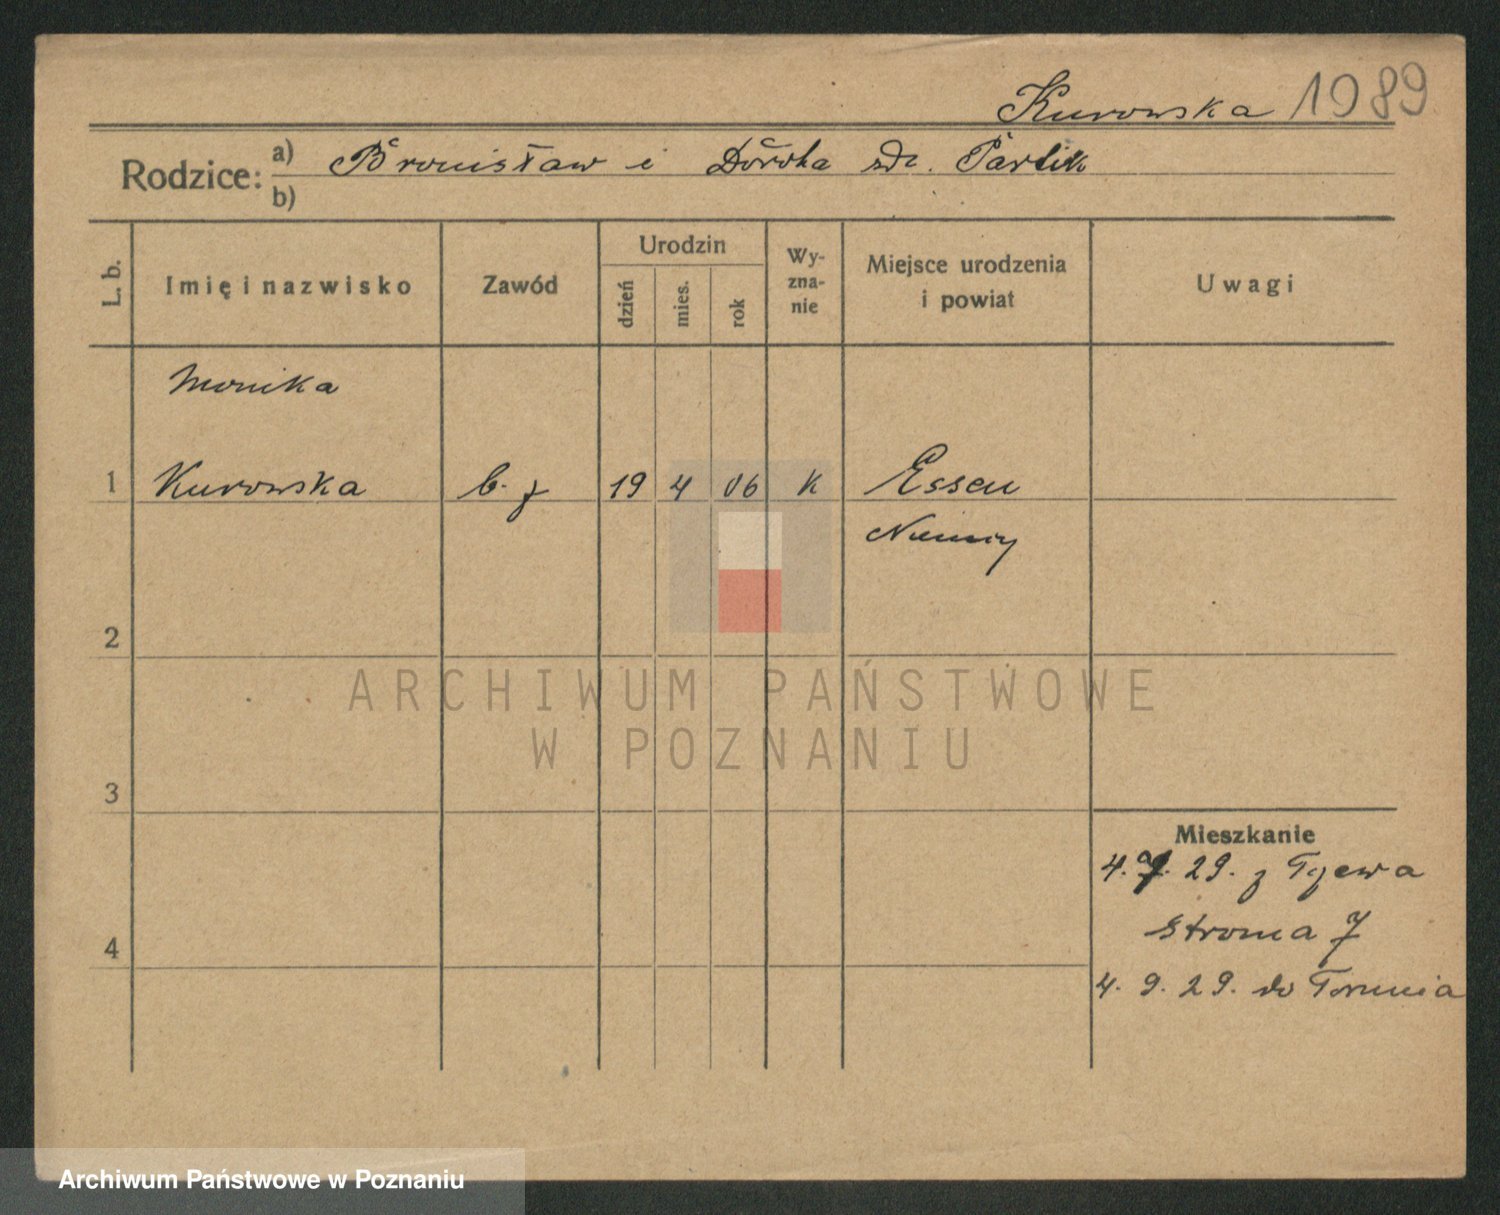 Kurowska 1989
Rodzice: a) Bronisław i Dorota zd. Partik
b)
L. b.
Imię i nazwisko
Zawód
Urodzin
dzień
mies.
rok
Wy-
zna-
nie
Miejsce urodzenia
i powiat
Uwagi
Monika
1 Kurowska b. z 19 4 06 K Essen
Niemcy
2
ARCHIWUM PAŃSTWOWE
W POZNANIU
3
Mieszkanie
4. 29. z Tczewa
4
Stroma 7
4. 9. 29. do Torunia
Archiwum Państwowe w Poznaniu